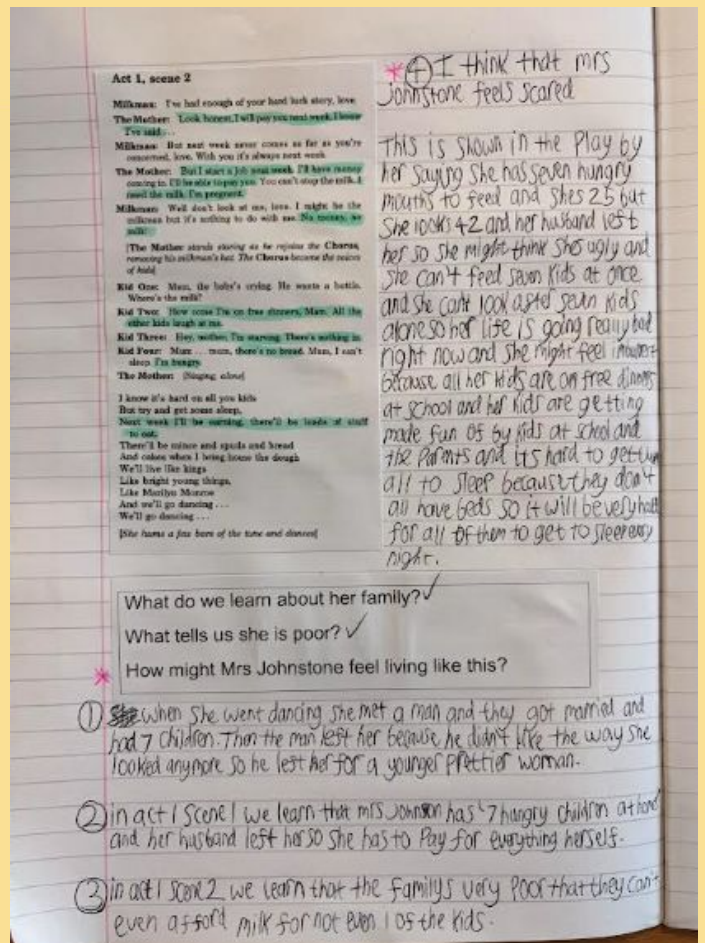 Act 1, scene 2
Milkman: I've had enough of your hard luck story, love.
The Mother: Look honest, I will pay you next week. I know
I've said . . .
Milkman: But next week never comes as far as you're
concerned, love. With you it's always next week.
The Mother: But I start a job next week. I'll have money
coming in. I'll be able to pay you. You can't stop the milk. I
need the milk. I'm pregnant.
Milkman: Well don't look at me, love. I might be the
milkman but it's nothing to do with me. No money, no
milk!
[The Mother stands staring as he rejoins the Chorus,
removing his milkman's hat. The Chorus become the voices
of kids]
Kid One: Mam, the baby's crying. He wants a bottle.
Where's the milk?
Kid Two: How come I'm on free dinners, Mam. All the
other kids laugh at me.
Kid Three: Hey, mother, I'm starving. There's nothing in.
Kid Four: Mam . . . mam, there's no bread. Mam, I can't
sleep. I'm hungry.
The Mother: [Singing, alone]
I know it's hard on all you kids
But try and get some sleep,
Next week I'll be earning, there'll be loads of stuff
to eat.
There'll be mince and spuds and bread
And cakes when I bring home the dough
We'll live like kings
Like bright young things,
Like Marilyn Monroe
And we'll go dancing . . .
We'll go dancing . . .
[She hums a few bars of the tune and dances]
4 I think that mrs
Johnstone feels scared
This is shown in the Play by
her saying she has seven hungry
mouths to feed and shes 25 but
She looks 42 and her husband left
her so she might think shes ugly and
she can't feed seven kids at once
and she cant look after seven kids
alone so her life is going really bad
right now and she might feel
because all her kids are on free dinners
at school and her kids are getting
made fun of by kids at school and
the Parents and its hard to get
all to sleep because they don't
all have beds so it will be very hard
for all of them to get to sleep every
night.
What do we learn about her family?
What tells us she is poor?
How might Mrs Johnstone feel living like this?
1 when she went dancing she met a man and they got married and
had 7 children. Then the man left her because he didn't like the way she
looked anymore so he left her for a younger prettier woman.
2 in act 1 scene 1 we learn that mrs Johnson has 7 hungry children at home
and her husband left her so she has to Pay for everything herself.
3 in act 1 scene 2 we learn that the familys very Poor that they can't
even afford milk for not even 1 of the kids.